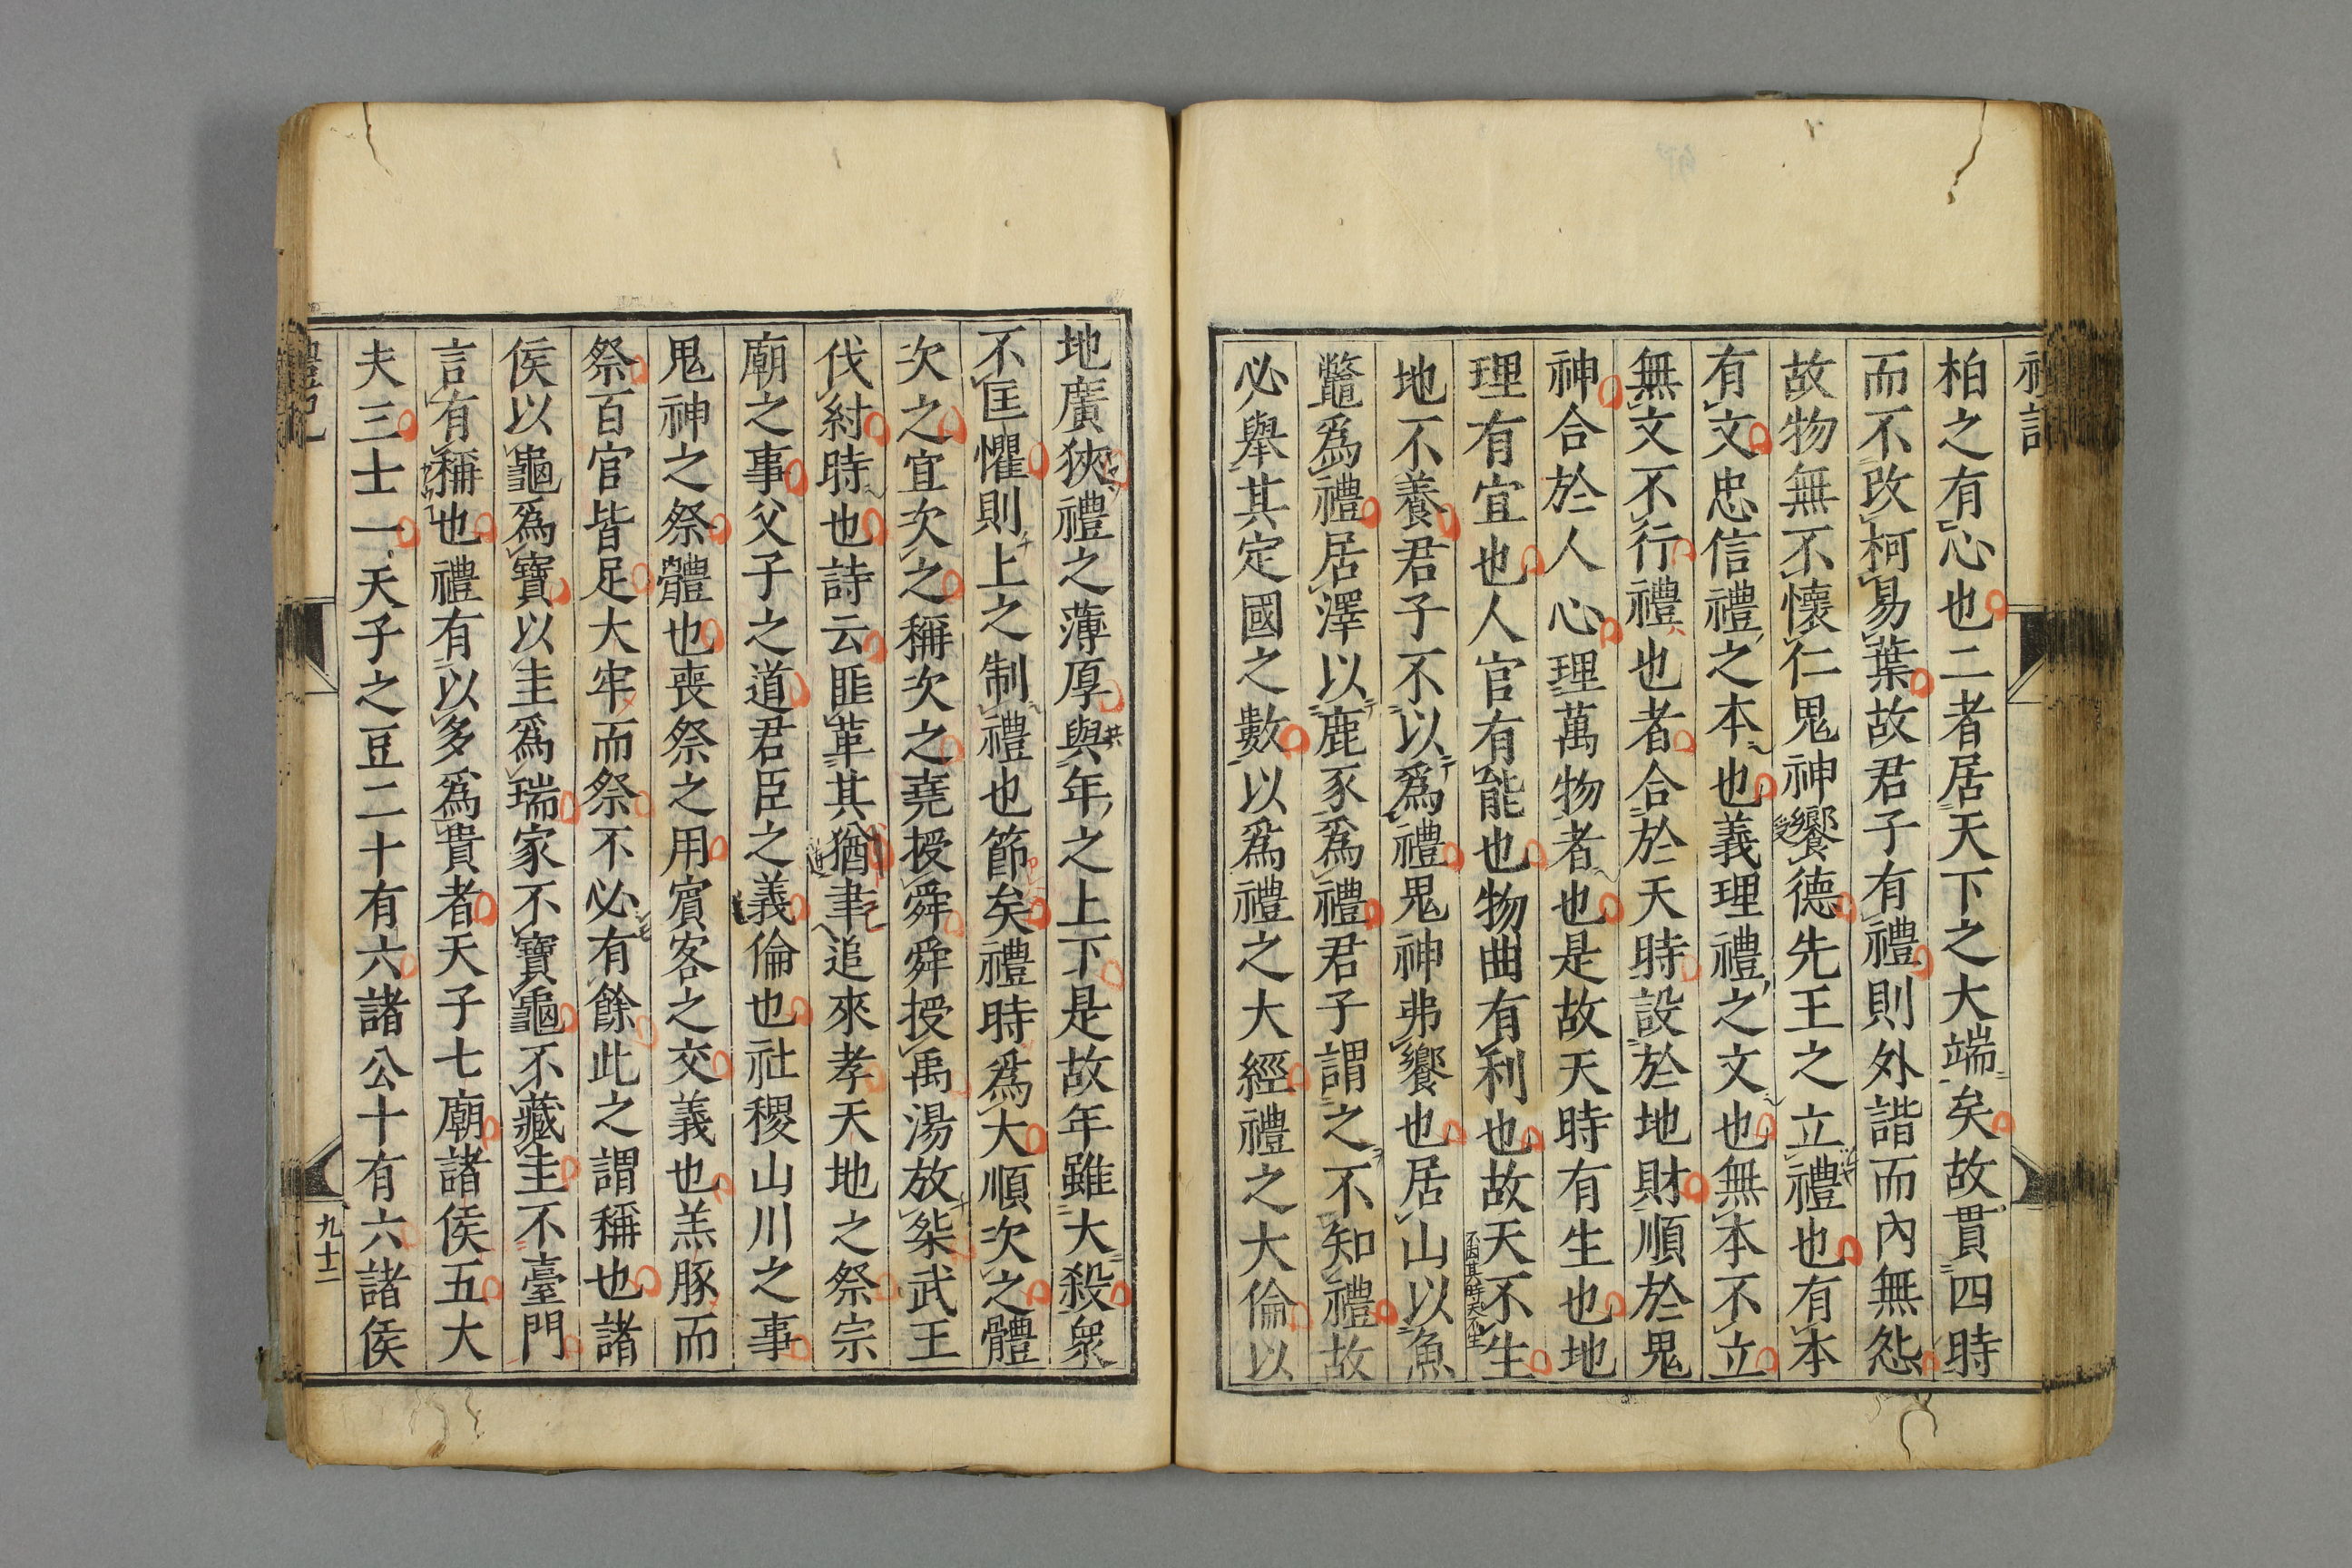 柏之有心也二者居天下之大端矣故貫四時
而不改柯易葉故君子有禮則外諧而內無怨
故物無不懷仁鬼神饗德先王之立禮也有本
有文忠信禮之本也義理禮之文也無本不立
無文不行禮也者合於天時設於地財順於鬼
神合於人心理萬物者也是故天時有生也地
理有宜也人官有能也物曲有利也故天不生
不因其時天不生
地不養君子不以爲禮鬼神弗饗也居山以魚
鼈爲禮居澤以鹿豕爲禮君子謂之不知禮故
必舉其定國之數以爲禮之大經禮之大倫以
地廣狹禮之薄厚與年之上下是故年雖大殺衆
不匡懼則上之制禮也節矣禮時爲大順次之體
次之宜次之稱次之堯授舜舜授禹湯放桀武王
伐紂時也詩云匪革其猶聿追來孝天地之祭宗
廟之事父子之道君臣之義倫也社稷山川之事
鬼神之祭體也喪祭之用賓客之交義也羔豚而
祭百官皆足大牢而祭不必有餘此之謂稱也諸
侯以龜爲寶以圭爲瑞家不寶龜不藏圭不臺門
言有稱也禮有以多爲貴者天子七廟諸侯五大
夫三士一天子之豆二十有六諸公十有六諸侯
禮記
九十二